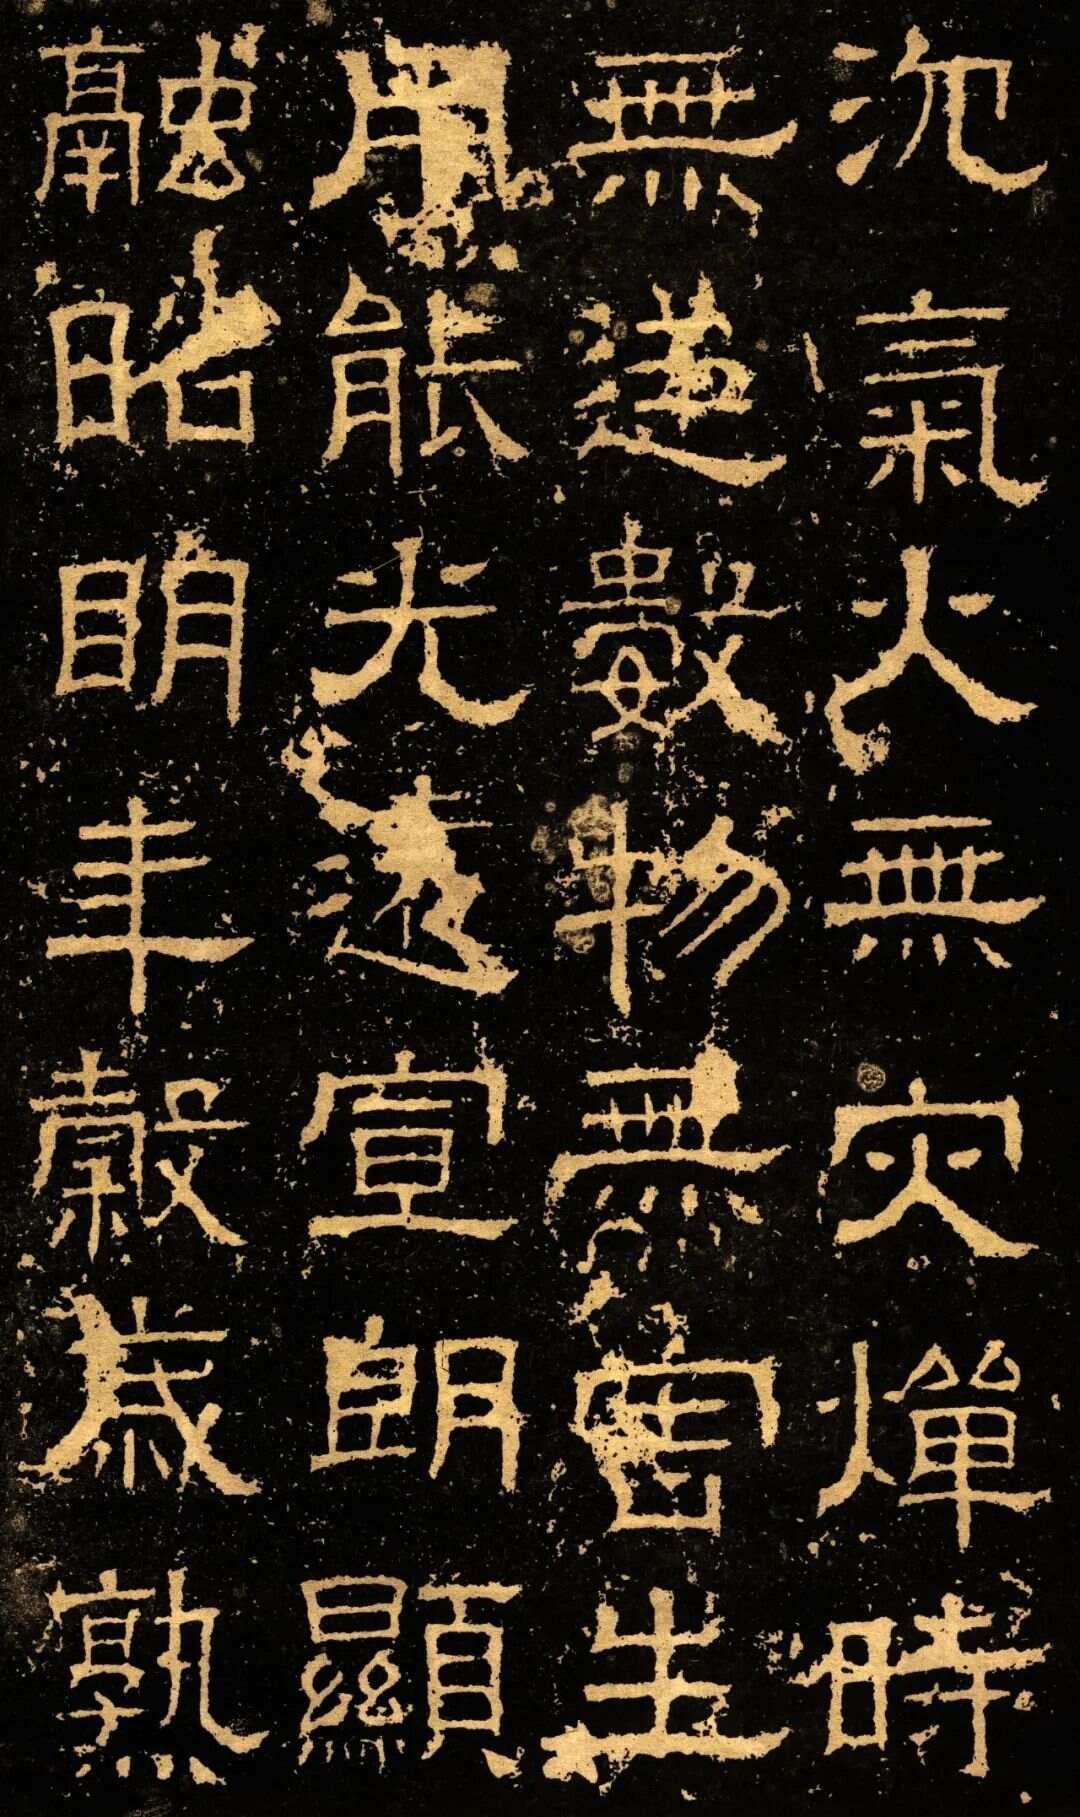 沉氣火無灾燀時
無逆數物無害生
用能光遠宣朗顯
融昭明年穀歲熟